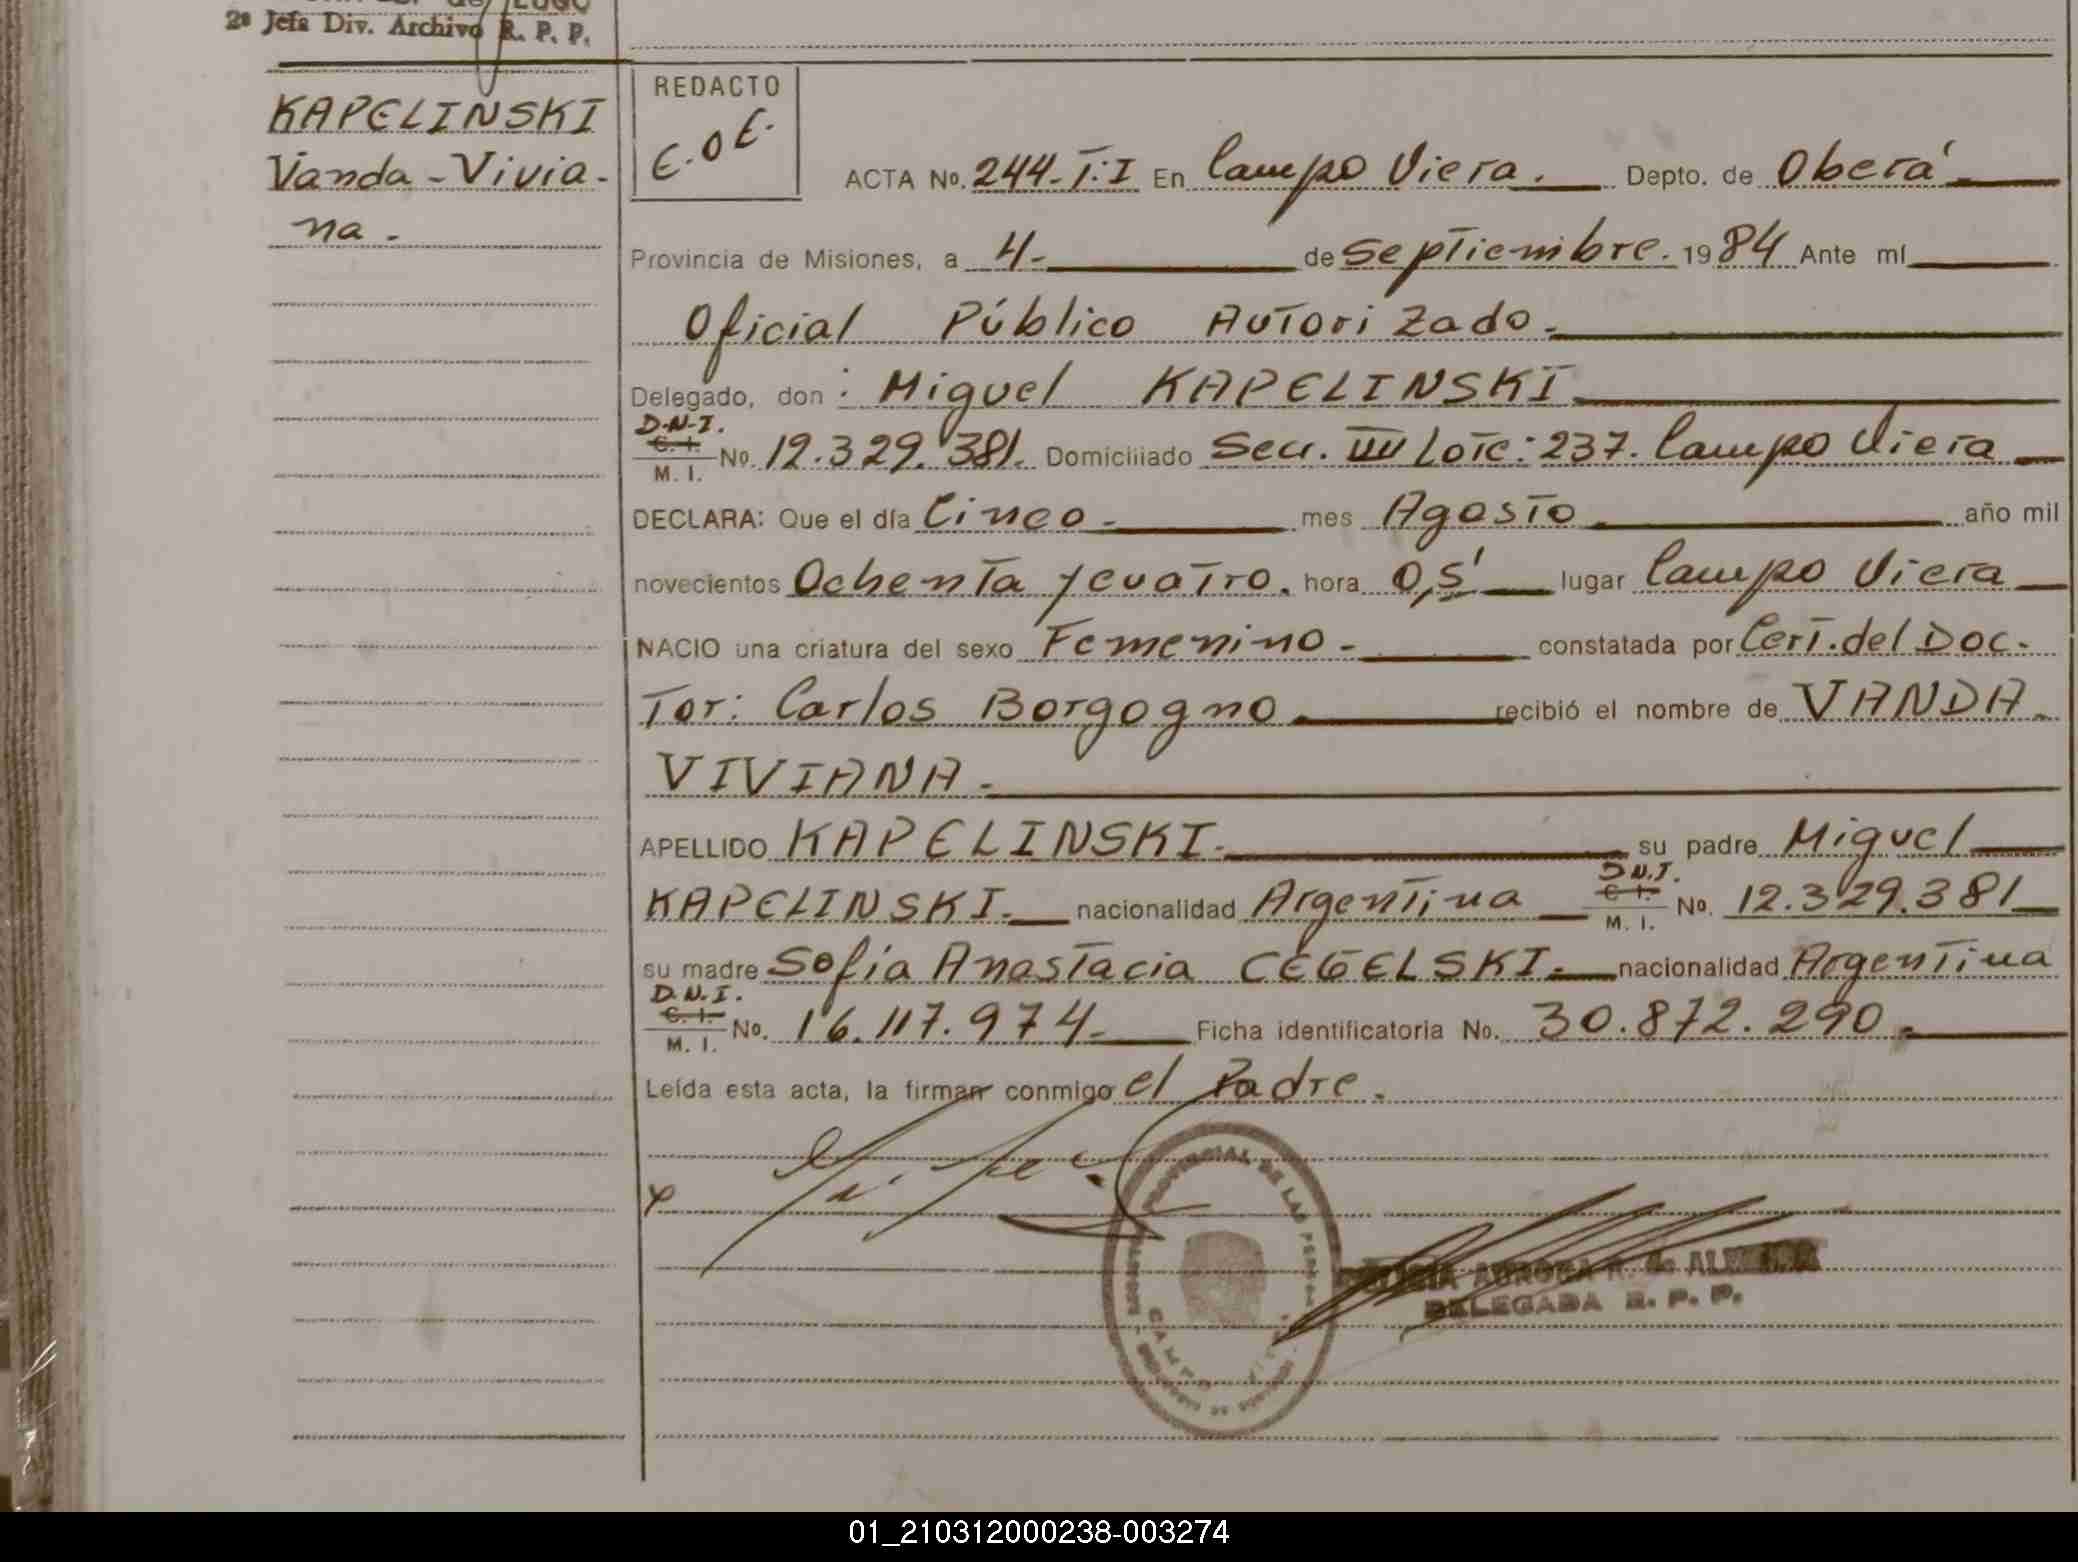 de LUGO
2ª Jefa Div. Archivo R. P. P.
KAPELINSKI
Vanda-Vivia-
na.
REDACTO
E.O.E.
ACTA No. 244-T:I En Campo Viera. Depto. de Oberá
Provincia de Misiones, a 4- de Septiembre. 1984 Ante mí
Oficial Público Autorizado.
Delegado, don: Miguel KAPELINSKI
D.N.I.
C. I.
M. I. No. 12.329.381. Domiciliado Secc. VIII Lote: 237. Campo Viera
DECLARA: Que el día Cinco- mes Agosto año mil
novecientos Ochenta y cuatro. hora 0,5' lugar Campo Viera
NACIO una criatura del sexo Femenino- constatada por Cert. del Doc-
tor: Carlos Borgogno recibió el nombre de VANDA
VIVIANA-
APELLIDO KAPELINSKI. su padre Miguel
KAPELINSKI. nacionalidad Argentina D.N.I. C. I. M. I. No. 12.329.381
su madre Sofia Anastacia CEGELSKI. nacionalidad Argentina
D.N.I.
C. I.
M. I. No. 16.117.974- Ficha identificatoria No. 30.872.290-
Leída esta acta, la firman conmigo el Padre.
PROVINCIAL DE LAS PERSONAS
CAMPO
AURORA R. de
DELEGADA R. P. P.
01_210312000238-003274